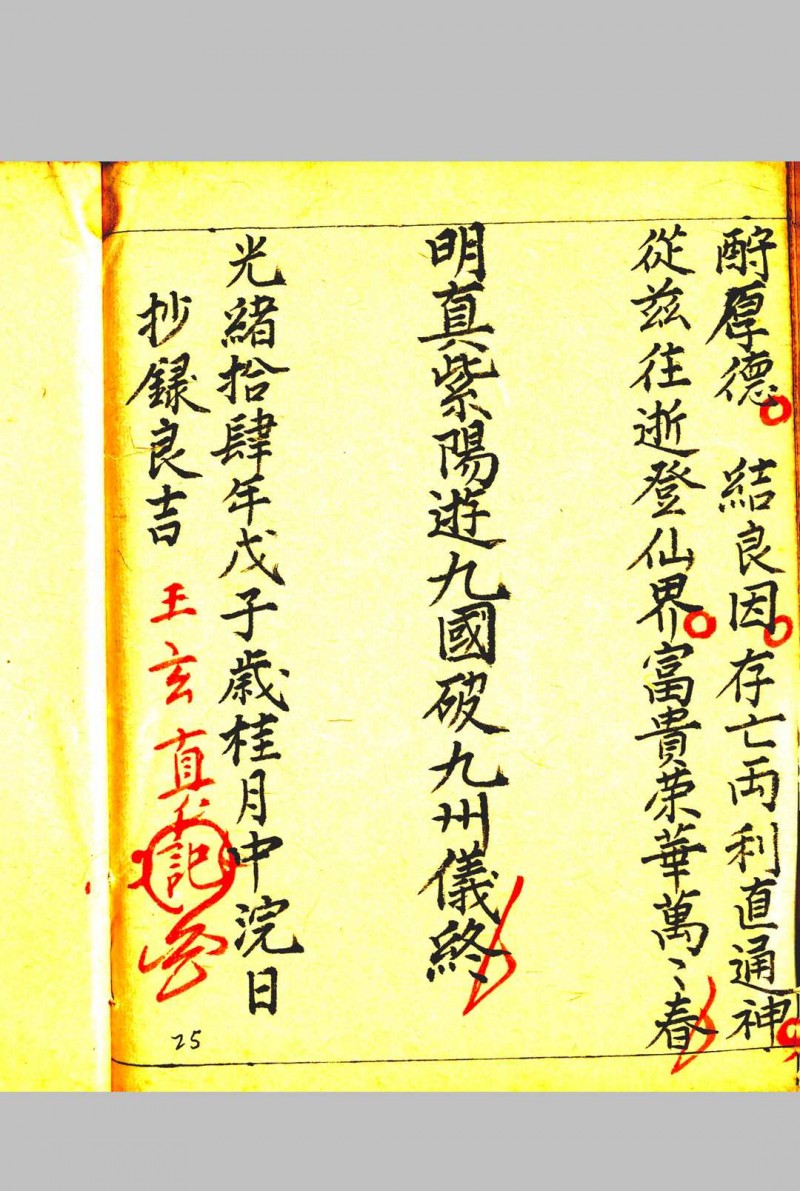 酧厚德。結良因。存亡両利直通神。
從兹往逝登仙界。富貴荣華萬〻春
明真紫陽遊九國破九州儀終
光緒拾肆年戊子歲桂月中浣日
抄録良吉 王玄真 記
25